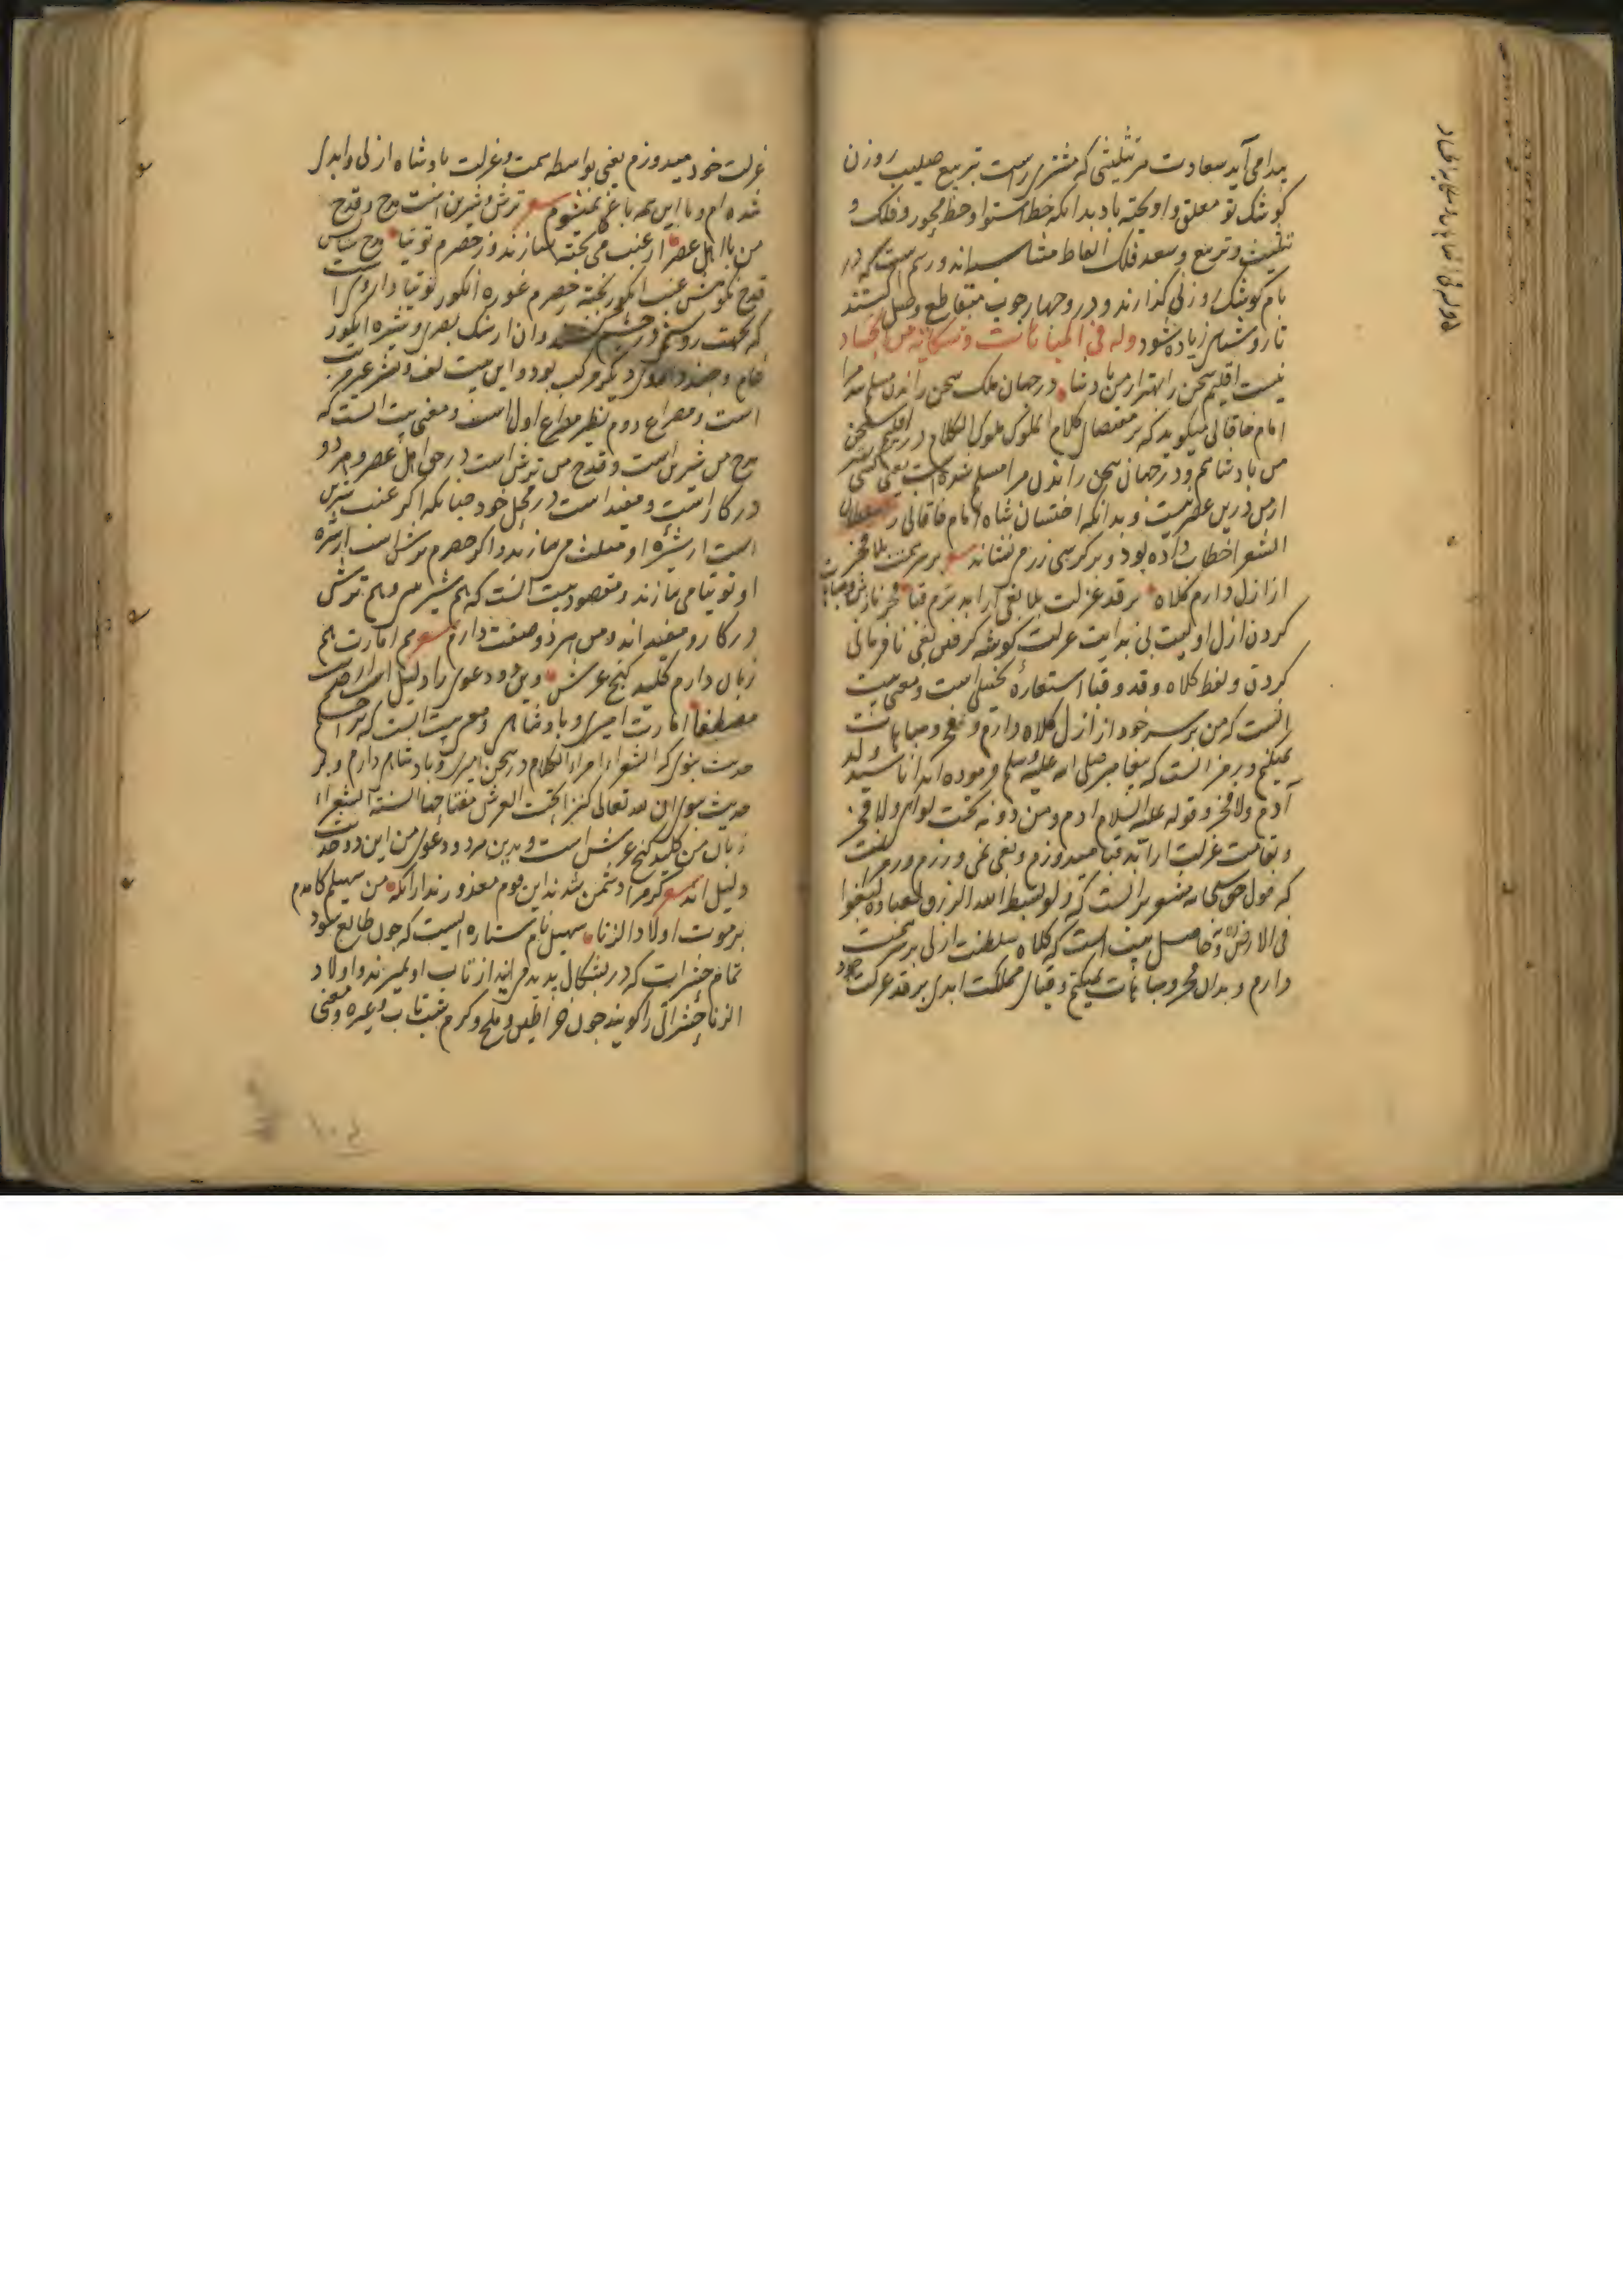 پیدا می آید سعادت هر تثلیثی که مشتری راست تربیع صلیب روزن
کوشک تو معلق و اویخته باد بدانکه خط استوا و خط محور و فلک و
تثلیث و تربیع و سعد فلک الفاظ متناسب اند و رسم است که در
بام کوشک روزنی گذارند و در و چهار چوب متقاطع وصل کنند
تا روشنای زیاده شود وله فی المباهات و شکایة من الحساد
نیست اقلیم سخن را بهتر از من پادشا در جهان ملک سخن راندن مسلم شد مرا
امام خاقانی میگوید که بر مقتضای کلام الملوک ملوک الکلام در اقلیم سخن
من پادشاهم و در جهان سخن راندن مرا مسلم شده است یعنی کسی
از من درین عصر نیست و بدانکه اخستان شاه امام خاقانی را سلطان
الشعرا خطاب داده بود و بر کرسی زرم نشاند شعر بر سر همت بلا فخر
از ازل دارم کلاه بر قد عزلت بلا بغی از ابد برم قبا فخر نازش و مباهات
کردن ازل اولیت بی بدایت عزلت گوشه گرفتن بغی نافرمانی
کردن و لفظ کلاه و قد و قبا استعاره تخییلی است و معنی بیت
انست که من بر سر خود از ازل کلاه دارم و فخر و مباهات
نمیکنم و بر مز الست که پیغامبر صلی الله علیه وسلم فرموده اند انا سید ولد
آدم ولا فخر و قوله علیه السلام ادم ومن دونه تحت لوای ولا فخر
و بقامت عزلت از ابد قبا میدوزم و بغی نمی ورزم
که قول حق سبحانه مشعر برانست که ولو بسط الله الرزق لعباده لبغوا
فی الارض و حاصل بیت است که کلاه سلطنت ازلی بر سر همت
دارم و بدان فخر و مباهات نمیکنم و قبای مملکت ابدی بر قد عزلت خود
عزلت خود میدوزم یعنی بواسطه همت و عزلت پادشاه ازلی و ابدی
شده ام و با این همه باغی نمیشوم شعر ترش و شیرین است مدح و قدح
من با اهل عصر از عنب می پخته سازند و ز حصرم توتیا مدح ستایش
قدح نکوهش عنب انگور پخته حصرم غوره انگور توتیا داروی است
که بجهت روشنی در چشم کشند و ان از سنگ بصری و شیره انگور
خام و چند داروی دیگر مرکب بود و این بیت لف و نشر غیر مرتب
است و مصراع دوم نظیر مصراع اول است و معنی بیت است که
مدح من شیرین است و قدح من ترش است در حق اهل عصر و هر دو
در کار است و مفید است در محل خود چنانکه اگر عنب شیرین
است از شیره او مثلث می سازند و اگر حصرم ترش است از شیره
او توتیا می سازند و مقصود بیت انست که هم شیرین و هم ترش
در کار و مفید اند و من هر دو صفت دارم شعر هم امارت هم
زبان دارم کلید گنج عرش وین دو دعوی را دلیل است از حدیث
مصطفا امارت امیری و پادشاهی و معنی بیت است که بر حکم
حدیث نبوی که الشعراء امراء الکلام در سخن امیری و پادشاهی دارم و بر
حدیث نبوی ان لله تعالی کنزا تحت العرش مفتاحها السنة الشعراء
زبان من کلید گنج عرش است و بدین هر دو دعوی من این دو حدیث
دلیل اند شعر گر مرا دشمن شدند این قوم معذورند ازانکه من سهیلم کامدم
بر موت اولاد الزنا سهیل نام ستاره ایست که چون طالع شود
تمام حشرات که در بشکال پدید می آیند از تاب او بمیرند و اولاد
الزنا حشراتی را گویند چون خراطین و ملخ و کرم شب تاب و غیره و معنی